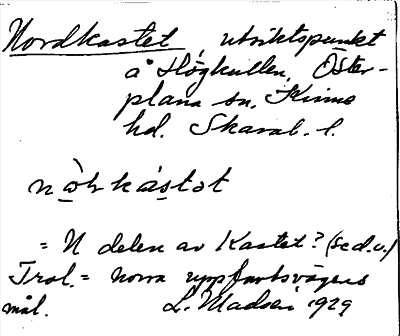 Nordkastet, utsiktspunkt
å Högkullen, Öster-
plana sn. Kinne
hd. Skarab. l.
nò̠rká̠stət
= N delen av Kastet? (se d.o.)
Trol. = norra uppfartsvägens
mål. L. Madsén 1929